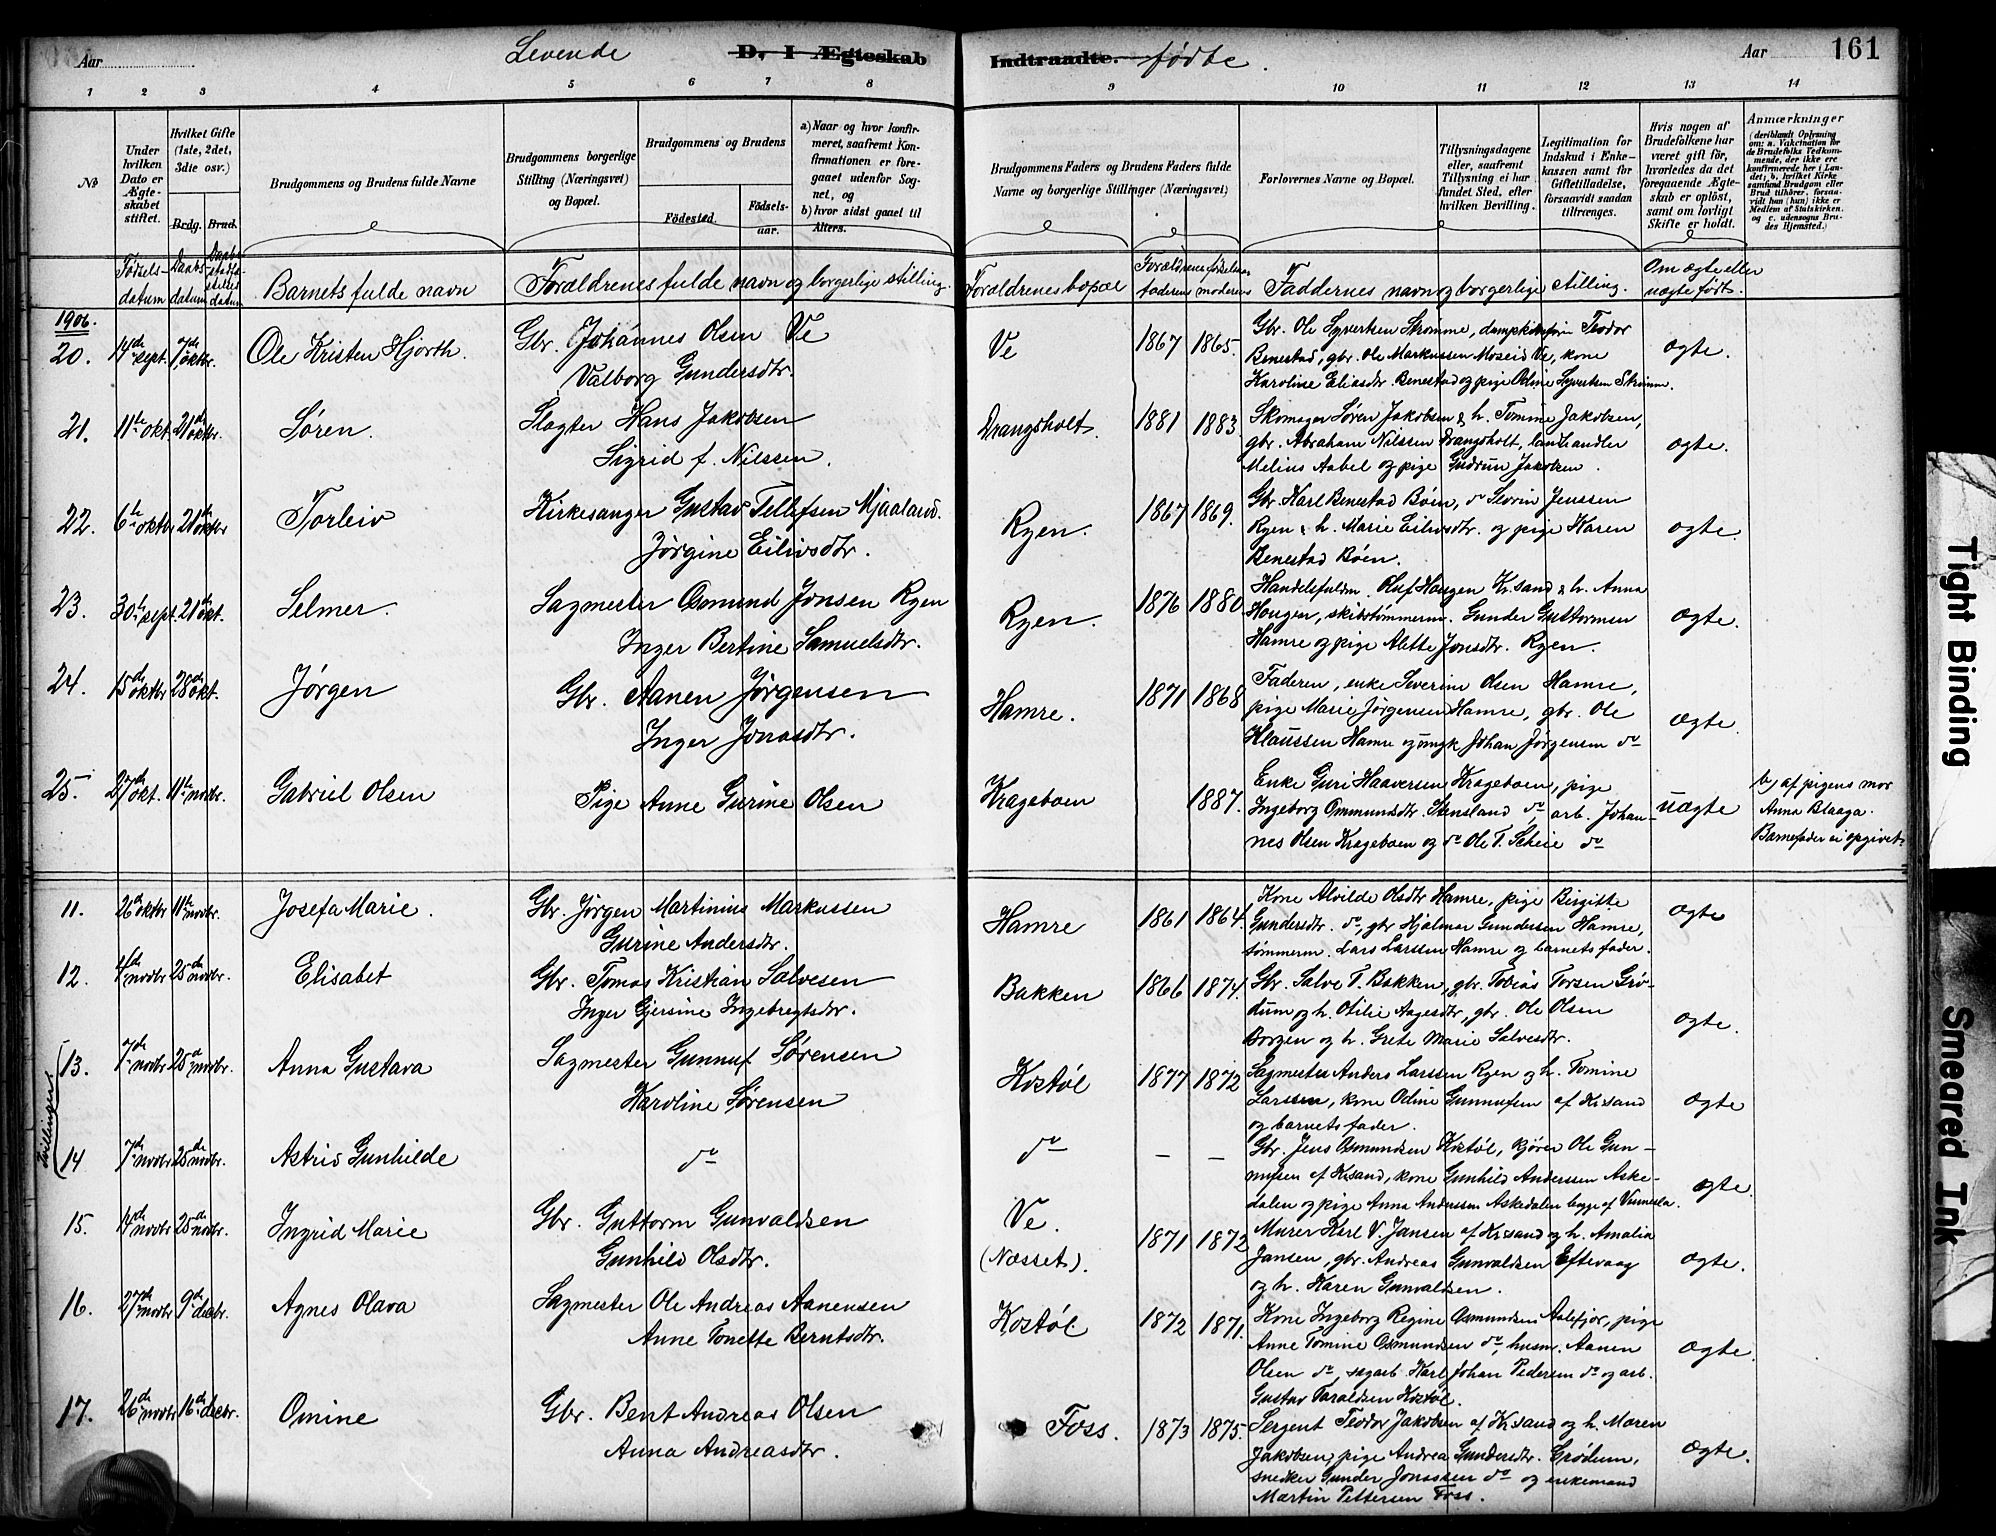 Aar
Levende
D. I Ægteskab
Indtraadte.
fødte.
Aar
161
1 2 3 4 5 6 7 8 9 10 11 12 13 14
No
Under hvilken Dato er Ægteskabet stiftet.
Hvilket Gifte (1ste, 2det, 3die osv.)
Brdg. Brud.
Brudgommens og Brudens fulde Navne
Brudgommens borgerlige Stilling (Næringsvei) og Bopæl.
Brudgommens og Brudens
Födested.
Födsels-aar.
a) Naar og hvor konfirmeret, saafremt Konfirmationen er foregaaet udenfor Sognet, og
b) hvor sidst gaaet til Alters.
Brudgommens Faders og Brudens Faders fulde Navne og borgerlige Stillinger (Næringsvei)
Forlovernes Navne og Bopæl.
Tillysningsdagene eller, saafremt Tillysning ei har fundet Sted, efter hvilken Bevilling.
Legitimation for Indskud i Enkekassen samt for Giftetilladelse, forsaavidt saadan tiltrænges.
Hvis nogen af Brudefolkene har været gift för, hvorledes da det foregaaende Ægteskab er oplöst, samt om lovligt Skifte er holdt.
Anmærkninger
(deriblandt Oplysning om: a. Vakcination for de Brudefolks Vedkommende, der ikke ere konfirmerede her i Landet; b. hvilket Kirkesamfund Brudgom eller Brud tilhörer, forsaavidt han (hun) ikke er Medlem af Statskirken, og c. udensogns Brudes Hjemsted.)
Fødselsdatum
Daabsdatum
Barnets fulde navn
Forældrenes fulde navn og borgerlige stilling.
Forældrenes bopæl
faderens moderens
Faddernes navn og borgerlige stilling.
Om ægte eller uægte født.
1906.
20. 14de sept. 7de oktbr. Ole Kristen Hjorth. Gbr. Johannes Olsen Ve
Valborg Gundersdtr.
Ve 1867 1865. Gbr. Ole Syvertsen Strømme, Teodor
Benestad, gbr. Ole Markussen Moseid Ve, kone
Karoline Eliasdtr. Benestad og pige Odine Syvertsen Strømme.
ægte.
21. 11te okt. 21de oktbr. Søren. Slagter Hans Jakobsen
Sigrid f. Nilssen.
Drangsholt. 1881 1883 Skomager Søren Jakobsen & h. Tomine Jakobsen,
gbr. Abraham Nilssen Drangsholt, landhandler
Melius Aabel og pige Gudrun Jakobsen.
ægte.
22. 6te oktbr 21de oktbr Torleiv Kirkesanger Gustav Tellefsen Mjaaland.
Jørgine Eilivsdtr.
Ryen. 1867 1869. Gbr. Karl Benestad Bøen, do Severin Jenssen
Ryen & h. Marie Eilivsdtr. og pige Karen
Benestad Bøen.
ægte.
23. 30te sept. 21de okt. Selmer. Sagmester Osmund Jonsen Ryen
Inger Bertine Samuelsdtr.
Ryen. 1876 1880 Handelsfuldm. Oluf Haugen Kr.sand & h. Anna
Haugen, skibstømmerm. Gunder Guttormsen
Hamre og pige Alette Jonsdtr. Ryen.
ægte.
24. 15de oktbr 28de okt. Jørgen Gbr. Aanen Jørgensen
Inger Jonasdtr.
Hamre. 1871 1868 Faderen, enke Severine Olsen Hamre,
pige Marie Jørgensen Hamre, gbr. Ole
Klaussen Hamre og ungk. Johan Jørgensen do
ægte.
25. 27de okt. 11te novbr. Gabriel Olsen Pige Anne Gurine Olsen
Krageboen 1887. Enke Guri Haaversen Krageboen, pige
Ingeborg Ommundsdtr. Stensland do, arb. Johan-
nes Olsen Krageboen og do Ole T. Scheie do
uægte
b) af pigens mor
Anna Blaaga.
Barnefader ei opgivet.
11. 26de oktbr 11te novbr. Josefa Marie. Gbr. Jørgen Martinius Markussen
Gurine Andersdtr.
Hamre 1861 1864. Kone Alvilde Olsdtr Hamre, pige Birgitte
Gundersdtr. do, gbr Hjalmar Gundersen Hamre,
tømmerm. Lars Larssen Hamre og barnets fader.
ægte
12. 4de novbr 25de novbr. Elisabet Gbr. Tomas Kristian Salvesen
Inger Gjersine Ingebregtsdtr.
Bakken 1866 1874. Gbr. Salve T. Bakken, gbr. Tobias Torsen Grø-
dum og h. Otilie Aagesdtr, gbr. Ole Olsen
Borgen og h. Grete Marie Salvesdtr.
ægte.
Tvillinger
13. 7de novbr 25de novbr. Anna Gustava Sagmester Gunnuf Sørensen
Karoline Sørensen
Kostøl 1877 1872 Sagmester Anders Larssen Ryen og h. Tomine
Larssen, kone Odine Gunnufsen af Kr.sand
og barnets fader.
ægte
14 7de novbr 25de novbr. Astrid Gunhilde do
do – – Gbr. Jens Osmundsen Kostøl, kjører Ole Gun-
nufsen af Kr.sand, kone Gunhild Anderssen Aske-
dalen og pige Anna Anderssen Askedalen begge af Vennesla.
ægte.
15. 14de novbr 25de novbr. Ingrid Marie Gbr. Guttorm Gunvaldsen
Gunhild Olsdtr.
Ve.
(Næsset). 1871 1872 Murer Karl V. Jansen af Kr.sand og h. Amalia
Jansen, gbr. Andreas Gunvaldsen Eftevaag
og h. Karen Gunvaldsen.
ægte.
16. 27de novbr 9de decbr. Agnes Olava Sagmester Ole Andreas Aanensen
Anne Tonette Berntsdtr.
Kostøl 1872 1871. Kone Ingeborg Regine Osmundsen Aalefjær, pige
Anne Tomine Osmundsen do, husm. Aanen
Olsen do, sagarb. Karl Johan Pedersen do og arb.
Gustav Taraldsen Kostøl.
ægte.
17. 26de novbr 16de decbr. Omine Gbr. Bent Andreas Olsen
Anna Andreasdtr.
Foss. 1873 1875. Sergent Teodor Jakobsen af Kr.sand og h. Maren
Jakobsen, pige Andrea Gundersdtr. Grødum,
snedker Gunder Jonassen do og enkemand
Martin Pettersen Foss.
ægte.
Tight Binding
Smeared Ink